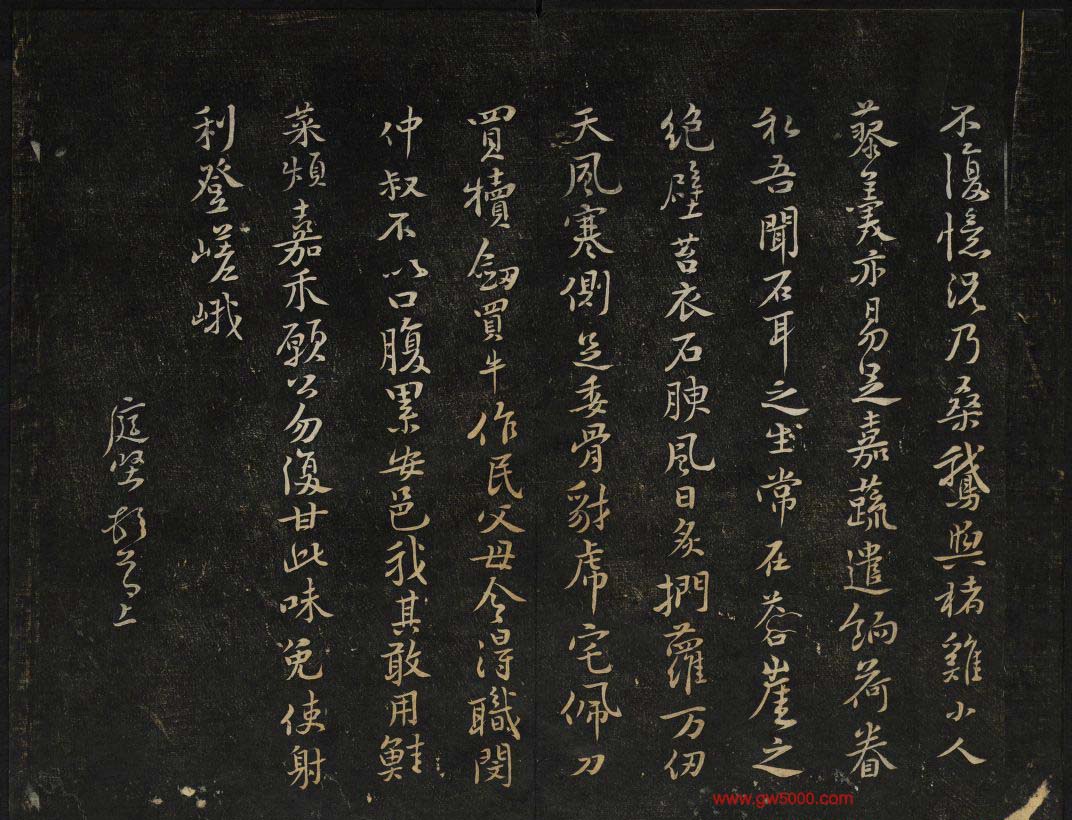 不復憶況乃桑鵝與楮雞小人
藜羹亦易足嘉蔬遣餉荷眷
私吾聞石耳之生常在蒼崖之
絕壁苔衣石腴風日炙捫蘿万仞
天風寒側足委骨豺虎宅佩刀
買犢劔買牛作民父母今得職閔
仲叔不以口腹累安邑我其敢用鮭
菜煩嘉禾願公勿復甘此味免使射
利登嵯峨
庭堅頓首上
www.gw5000.com